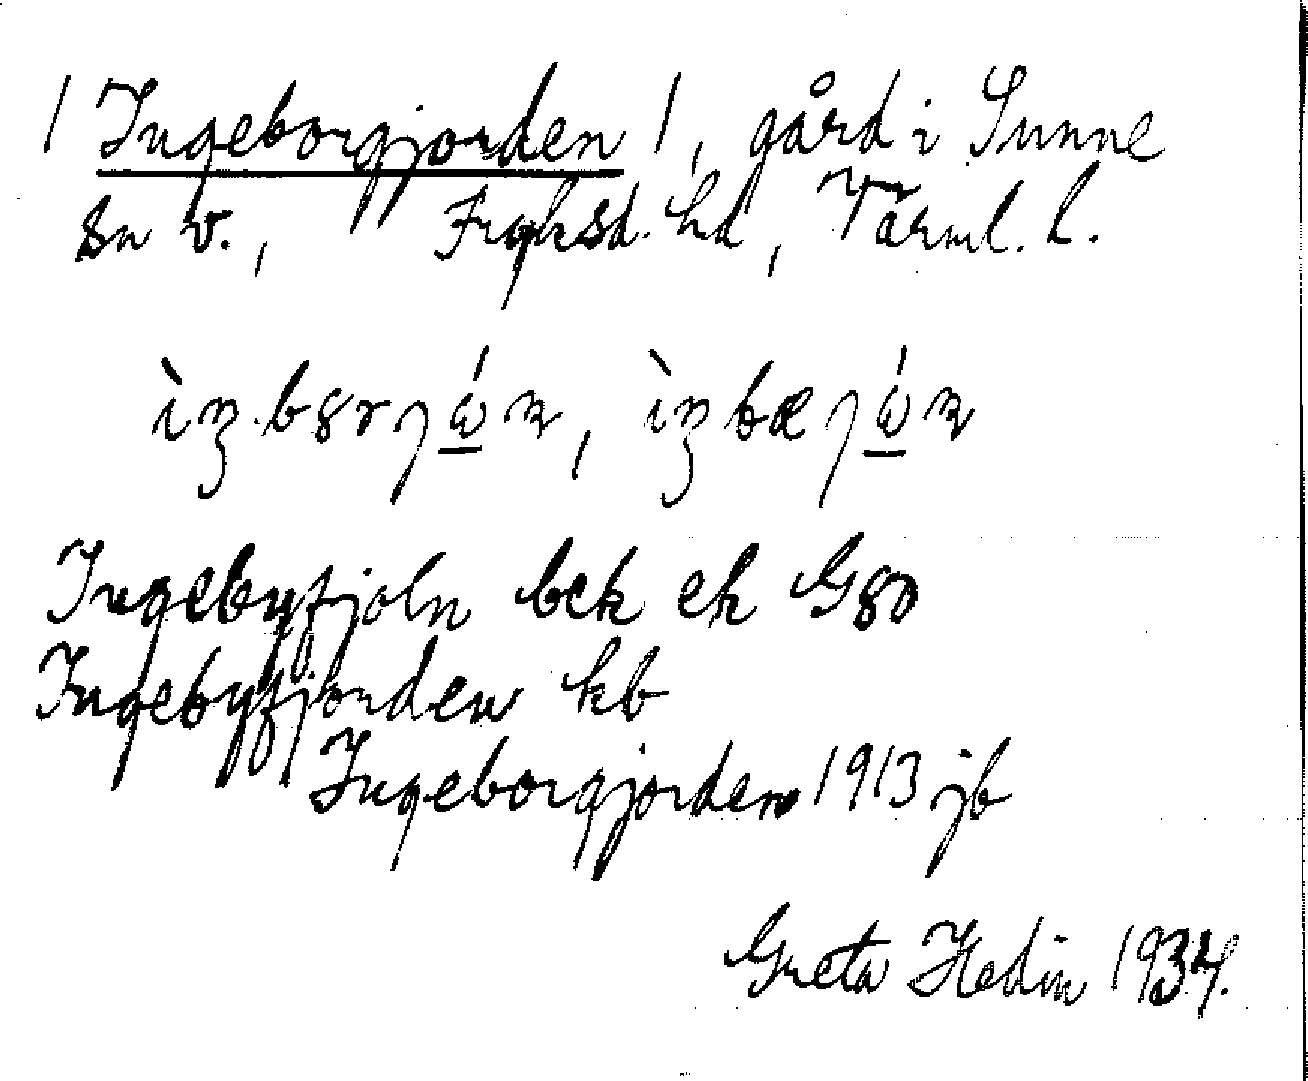 / Ingeborgjorden /, gård i Sunne
sn v., Fryksd. hd, Värml. l.
Ingebyfjoln bek ek G80
Ingebyfjorden kb
Ingeborgjorden 1913 jb
Greta Hedin 1934.